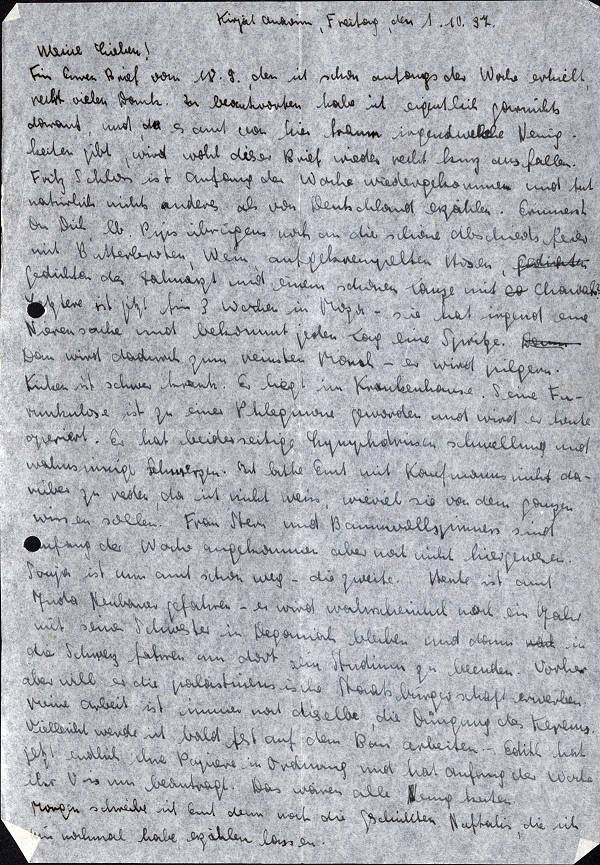 Kirjat Anavim, Freitag, den 1.10.37.
Meine Lieben!
Für Euren Brief vom 18.9. den ich schon anfangs der Woche erhielt,
recht vielen Dank. Zu beantworten habe ich eigentlich garnichts
daraus, und da es auch von hier kaum irgendwelche Neuig-
keiten gibt, wird wohl dieser Brief wieder recht kurz ausfallen.
Fritz Schloss ist Anfang der Woche wiedergekommen und tut
natürlich nichts anderes als von Deutschland erzählen. Erinnerst
Du Dich, lb. Pips übrigens noch an die schöne Abschiedsfeier
mit Butterbroten, Wein, aufgekrempelten Hosen,
gedichten der Zahnarzt und einem schönen Tanze mit Chawah?
Letztere ist jetzt für 3 Wochen in - sie hat irgend eine
Nierensache und bekommt jeden Tag eine Spritze.
Dan wird dadurch zum reinsten Mönch - er wird pilgern.
Küken ist schwer krank. Er liegt im Krankenhause. Seine Fu-
runkulose ist zu einer Phlegmone geworden und wird er heute
operiert. Er hat beiderseitige Lymphdrüsenschwellung und
wahnsinnige Schmerzen. Ich bitte Euch mit Kaufmanns nicht da-
rüber zu reden, da ich nicht weiss, wieviel sie von dem ganzen
wissen sollen. Frau Stern und Baumwollspinners sind
Anfang der Woche angekommen aber noch nicht hiergewesen.
Sonja ist nun auch schon weg - die zweite. Heute ist auch
Juda Neubauer gefahren - er wird wahrscheinlich noch ein Jahr
mit seiner Schwester in Deganiah bleiben und dann in
die Schweiz fahren um dort sein Studium zu beenden. Vorher
aber will er die palästinensische Staatsbürgerschaft erwerben.
Meine Arbeit ist immer noch dieselbe, die Düngung des Kerems.
Vielleicht werde ich bald fest auf dem Bau arbeiten - Edith hat
jetzt endlich ihre Papiere in Ordnung und hat Anfang der Woche
ihr Visum beantragt. Das wären alle Neuigkeiten
Morgen schreibe ich Euch dann noch die Geschichten Naftalis, die ich
mir nochmal habe erzählen lassen.